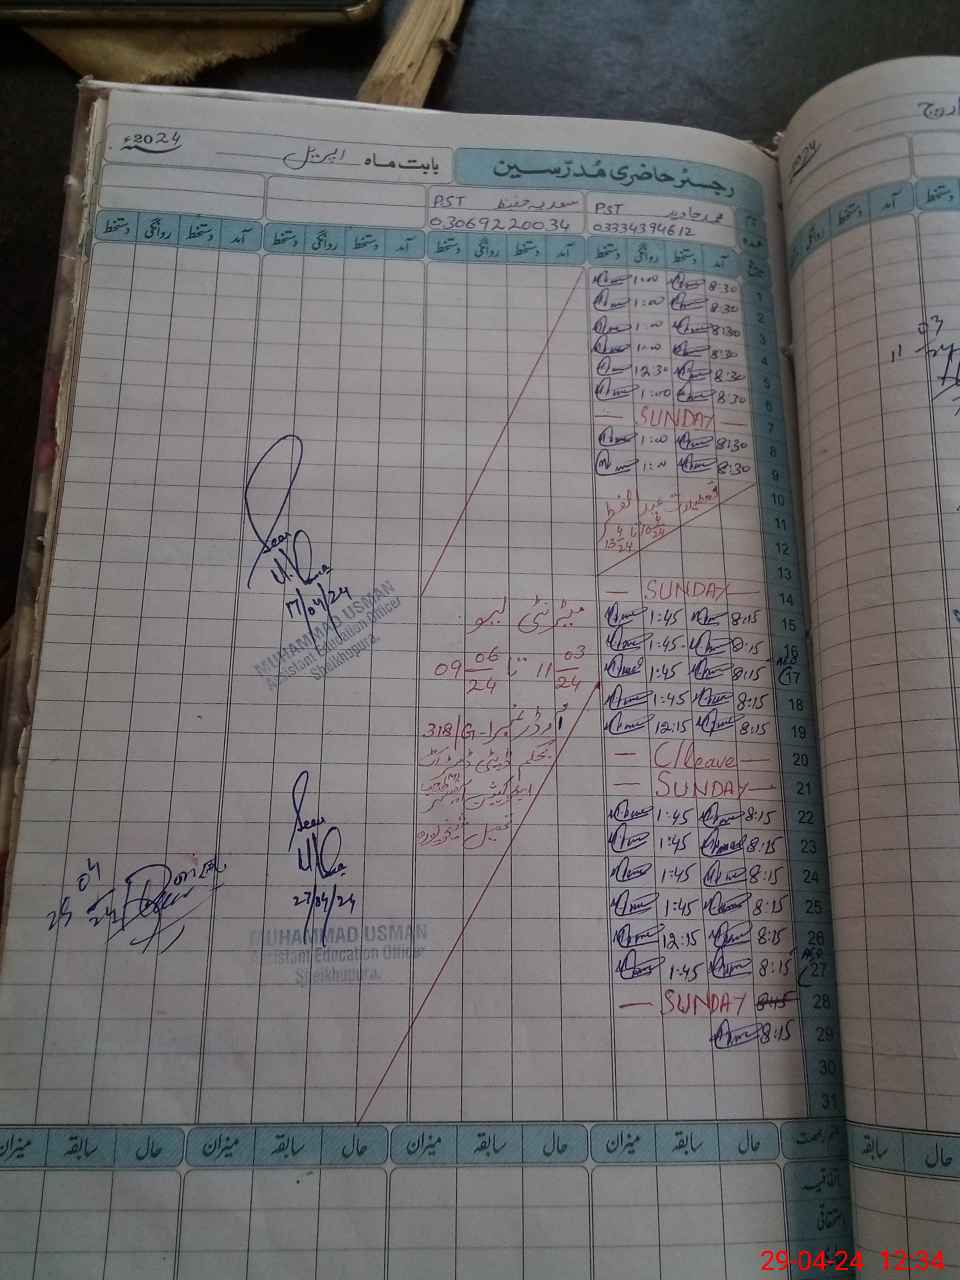 رجسٹر حاضری مُدرّسین
بابت ماہ اپریل 2024ء
نام محمد جاوید PST سعدیہ حفیظ PST
عہدہ 03334394612 03069220034
تاریخ آمد دستخط روانگی دستخط آمد دستخط روانگی دستخط آمد دستخط روانگی دستخط آمد دستخط روانگی دستخط
1 8:30 1:00
2 8:30 1:00
3 8:30 1:00
4 8:30 1:00
5 8:30 12:30
6 8:30 1:00
7 — SUNDAY —
8 8:30 1:00
9 8:30 1:00
10
11 عید الفطر
12 10 4/24 تا 13 4/24
13
14 — SUNDAY —
15 8:15 1:45
16 8:15 1:45
17 8:15 1:45
18 8:15 1:45
19 8:15 12:15
20 — C/leave —
21 — SUNDAY —
22 8:15 1:45
23 8:15 1:45
24 8:15 1:45
25 8:15 1:45
26 8:15 12:15
27 8:15 1:45
28 8:45 — SUNDAY —
29 8:15
30
31
میٹرنٹی لیو
11 03/24 تا 09 06/24
آرڈر نمبر 318/G-I
بحکم ڈپٹی ڈسٹرکٹ
ایجوکیشن آفیسر
تحصیل شیخوپورہ
Seen
17/04/24
MUHAMMAD USMAN
Assistant Education Officer
Sheikhupura.
Seen
27/04/24
MUHAMMAD USMAN
Assistant Education Officer
Sheikhupura.
29 04/24
حال سابقہ میزان حال سابقہ میزان حال سابقہ میزان حال سابقہ میزان
اتفاقیہ
استحقاقی
2024
آمد دستخط روانگی دستخط
11 03/24
حال سابقہ
29-04-24 12:34